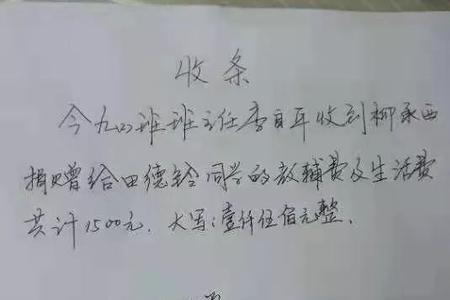 收条
今九四班班主任李自年收到柳承西
捐赠给田德铃同学的教辅费及生活费
共计1500元.大写:壹仟伍佰元整.